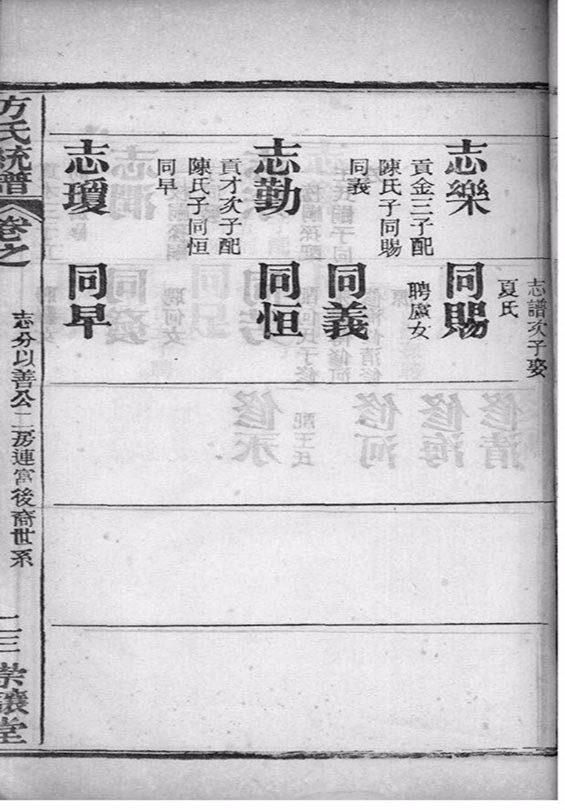 志樂
貢金三子配
陳氏子同賜
同義
志勤
貢才次子配
陳氏子同恒
同早
志瓊
志譜次子娶
夏氏
同賜
聘盧女
同義
同恒
同早
方氏統譜
卷之
志分以善公二房連富後裔世系
二三
崇讓堂